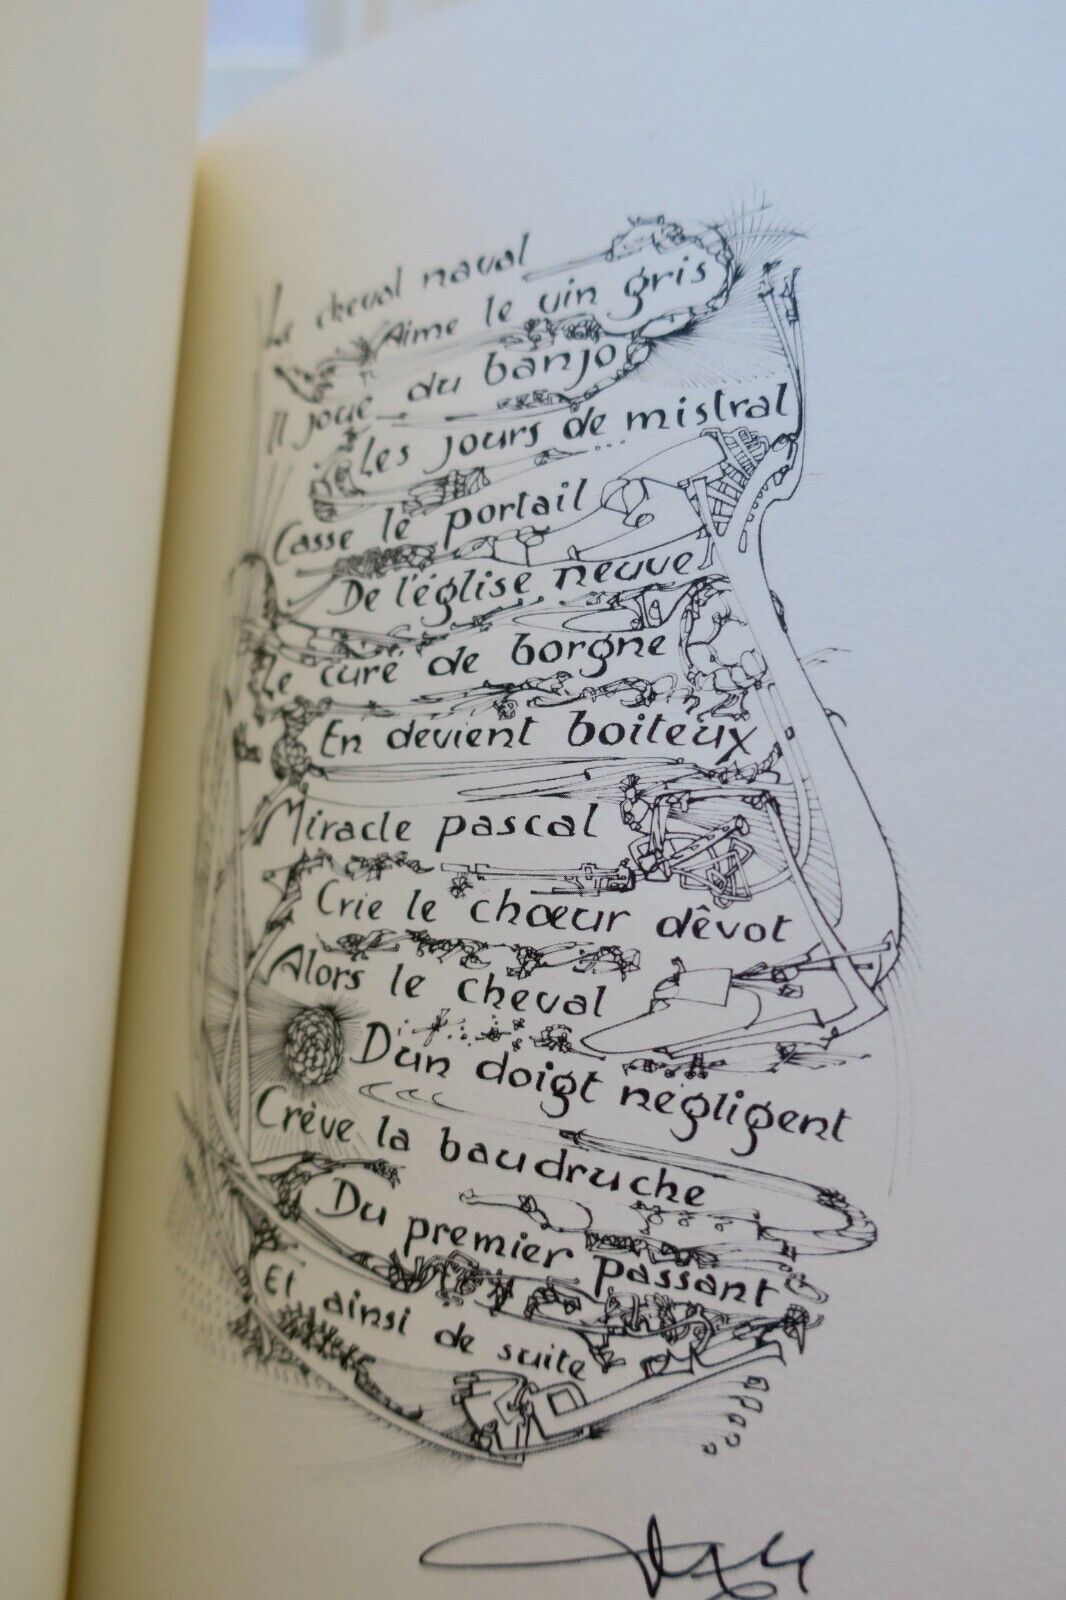 Le cheval naval
Aime le vin gris
Il joue du banjo
Les jours de mistral
Casse le portail
De l'église neuve
Le curé de borgne
En devient boiteux
Miracle pascal
Crie le chœur dêvot
Alors le cheval
D'un doigt négligent
Crève la baudruche
Du premier passant
Et ainsi de suite